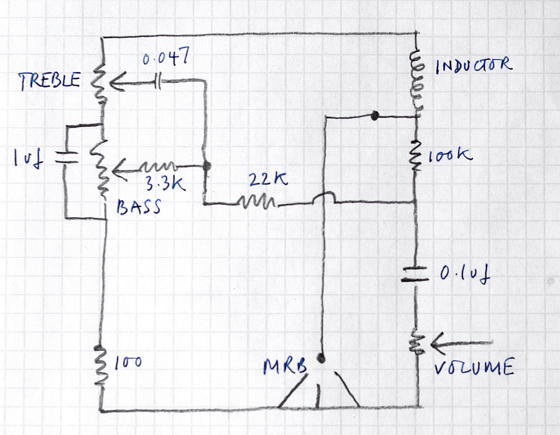 0.047
TREBLE
INDUCTOR
1uf
100K
3.3K
22K
BASS
0.1uf
100
MRB
VOLUME